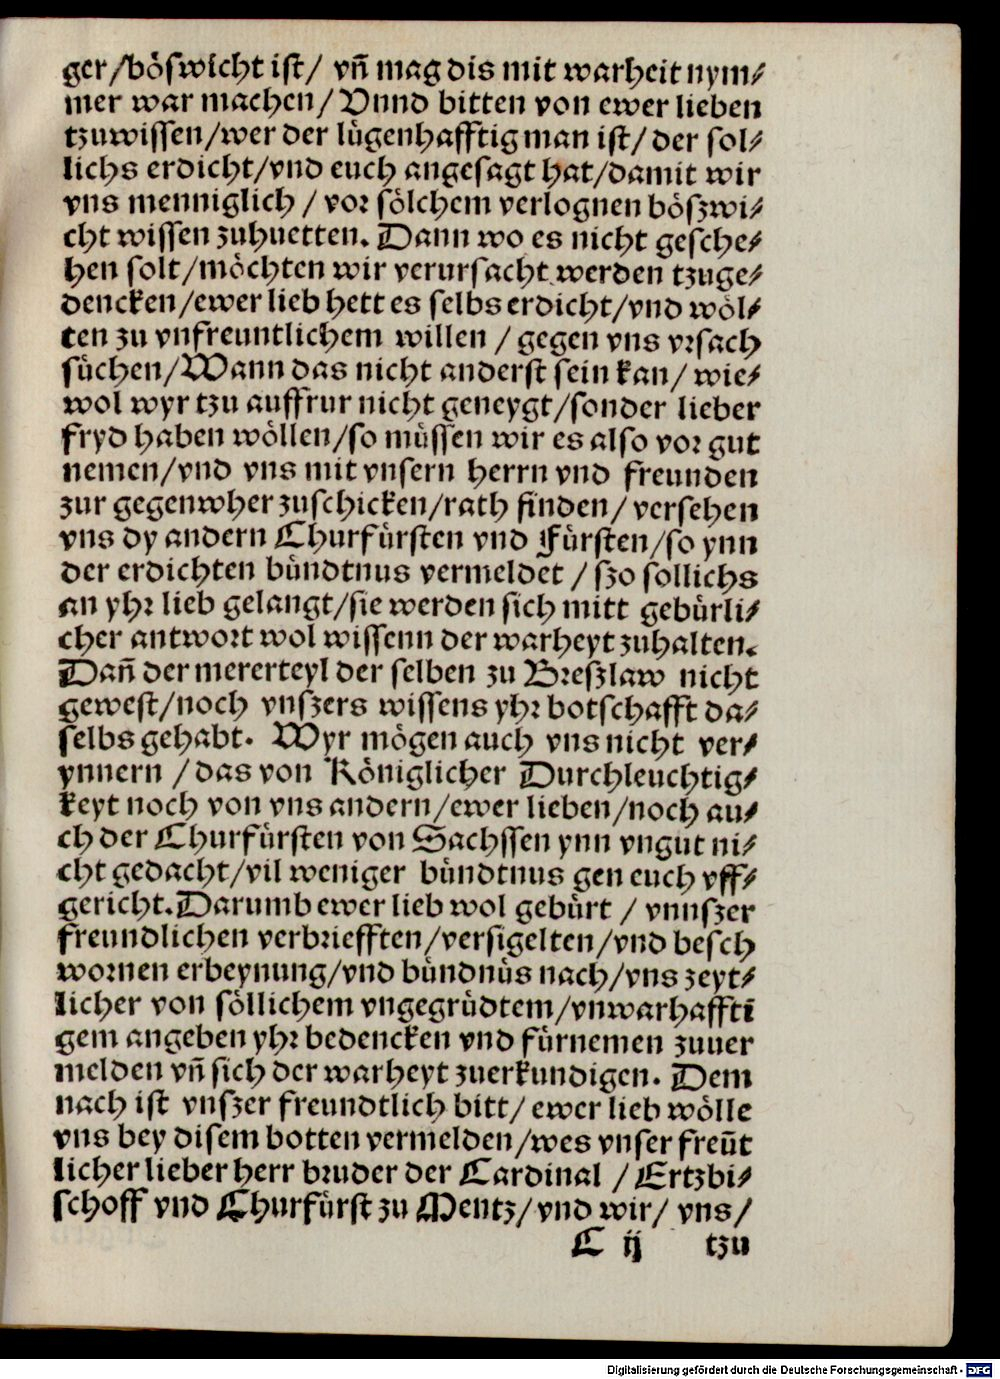 ger/böswicht ist/ vñ mag dis mit warheit nym⸗
mer war machen/ Vnnd bitten von ewer lieben
tzuwissen/wer der lügenhafftig man ist/ der sol⸗
lichs erdicht/vnd euch angesagt hat/damit wir
vns menniglich / vor sölchem verlognen böszwi⸗
cht wissen zuhuetten. Dann wo es nicht gesche⸗
hen solt/möchten wir verursacht werden tzuge⸗
dencken/ewer lieb hett es selbs erdicht/vnd wöl⸗
ten zu vnfreuntlichem willen / gegen vns vrsach
süchen/Wann das nicht anderst sein kan/ wie⸗
wol wyr tzu auffrur nicht geneygt/sonder lieber
fryd haben wöllen/so müssen wir es also vor gut
nemen/vnd vns mit vnsern herrn vnd freunden
zur gegenwher zuschicken/rath finden/ versehen
vns dy andern Churfürsten vnd Fürsten/so ynn
der erdichten bündtnus vermeldet / szo sollichs
an yhr lieb gelangt/sie werden sich mitt gebürli⸗
cher antwort wol wissenn der warheyt zuhalten.
Dañ der mererteyl der selben zu Breszlaw nicht
gewest/noch vnszers wissens yhr botschafft da⸗
selbs gehabt. Wyr mögen auch vns nicht ver⸗
ynnern / das von Königlicher Durchleuchtig⸗
keyt noch von vns andern/ewer lieben/noch au⸗
ch der Churfürsten von Sachssen ynn vngut ni⸗
cht gedacht/vil weniger bündtnus gen euch vff⸗
gericht.Darumb ewer lieb wol gebürt / vnnszer
freundlichen verbriefften/versigelten/vnd besch
wornen erbeynung/vnd bündnüs nach/vns zeyt⸗
licher von söllichem vngegrüdtem/vnwarhafftī
gem angeben yhr bedencken vnd fürnemen zuuer
melden vñ sich der warheyt zuerkundigen. Dem
nach ist vnszer freundtlich bitt/ ewer lieb wölle
vns bey disem botten vermelden/wes vnser freūt
licher lieber herr bruder der Cardinal / Ertzbi⸗
schoff vnd Churfürst zu Mentz/vnd wir/ vns/
C ij tzu
Digitalisierung gefördert durch die Deutsche Forschungsgemeinschaft - DFG